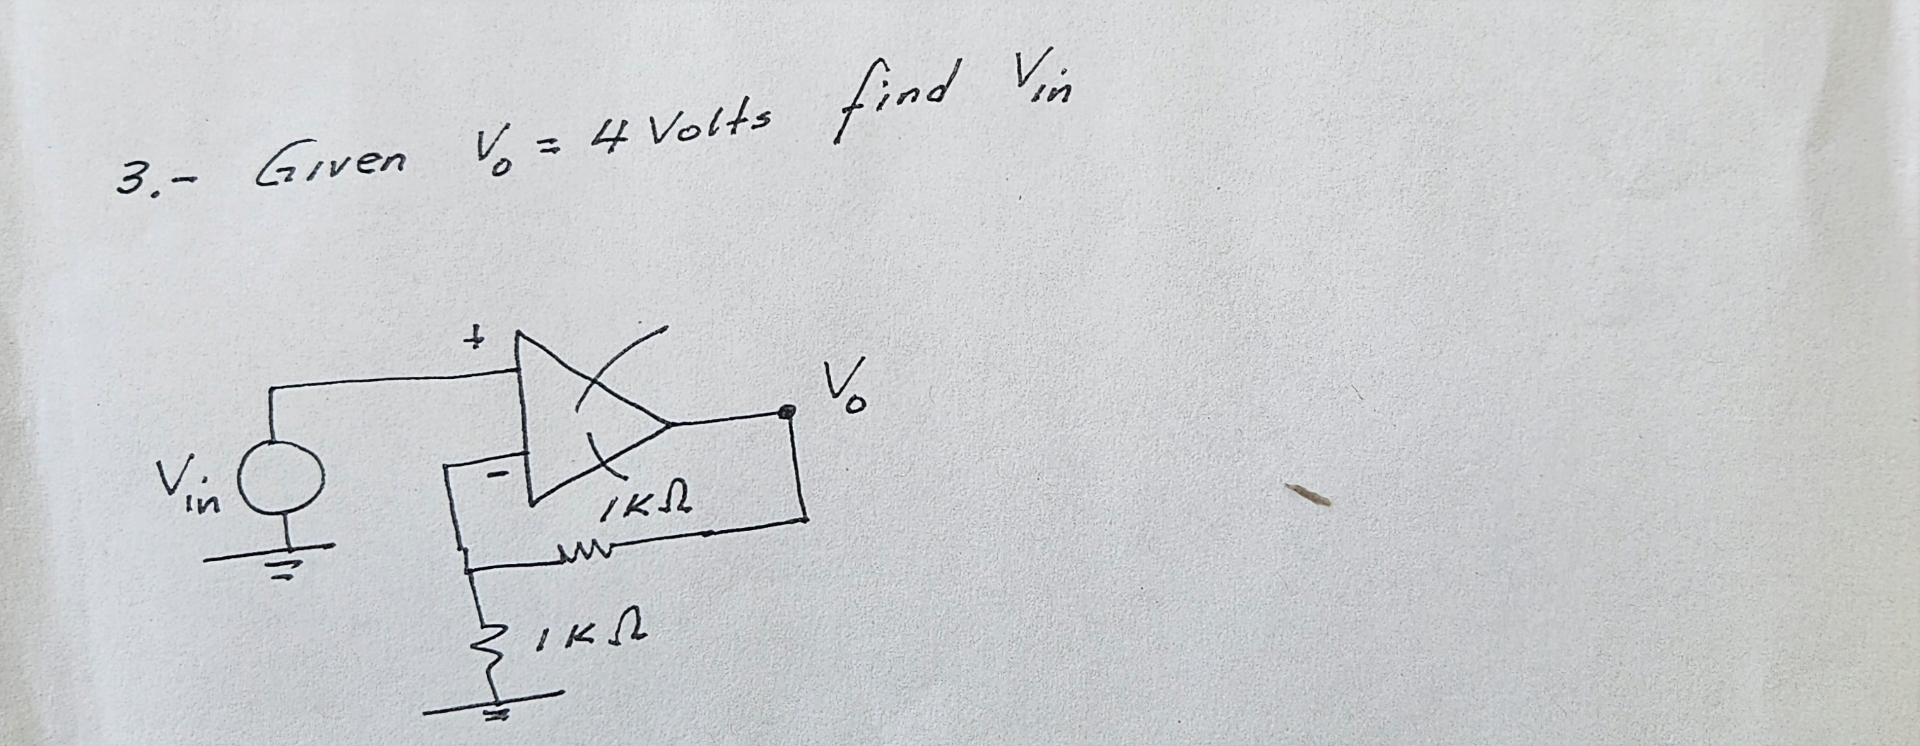 3.- Given Vo = 4 Volts find Vin
+
Vo
Vin
-
1KΩ
1KΩ